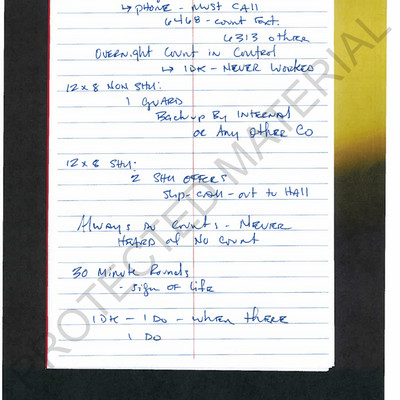 ↳ PHONE - MUST CALL
6468 - COUNT EXT.
6313 OTHER
OVERNIGHT COUNT IN CONTROL
↳ IDK - NEVER WORKED
12x8 NON SHU:
1 GUARD
BACKUP BY INTERNAL
OR ANY OTHER CO
12x8 SHU:
2 SHU OFFERS
SLIP - CALL - OUT TO HALL
ALWAYS DO COUNTS - NEVER
HEARD OF NO COUNT
30 MINUTE ROUNDS
- SIGN OF LIFE
IDK - I DO - WHEN THERE
I DO
PROTECTED MATERIAL